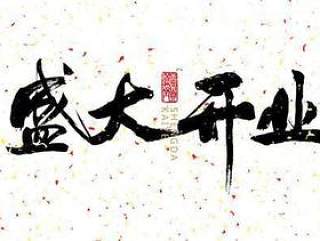 盛大开业
SHENGDA
KAIYE